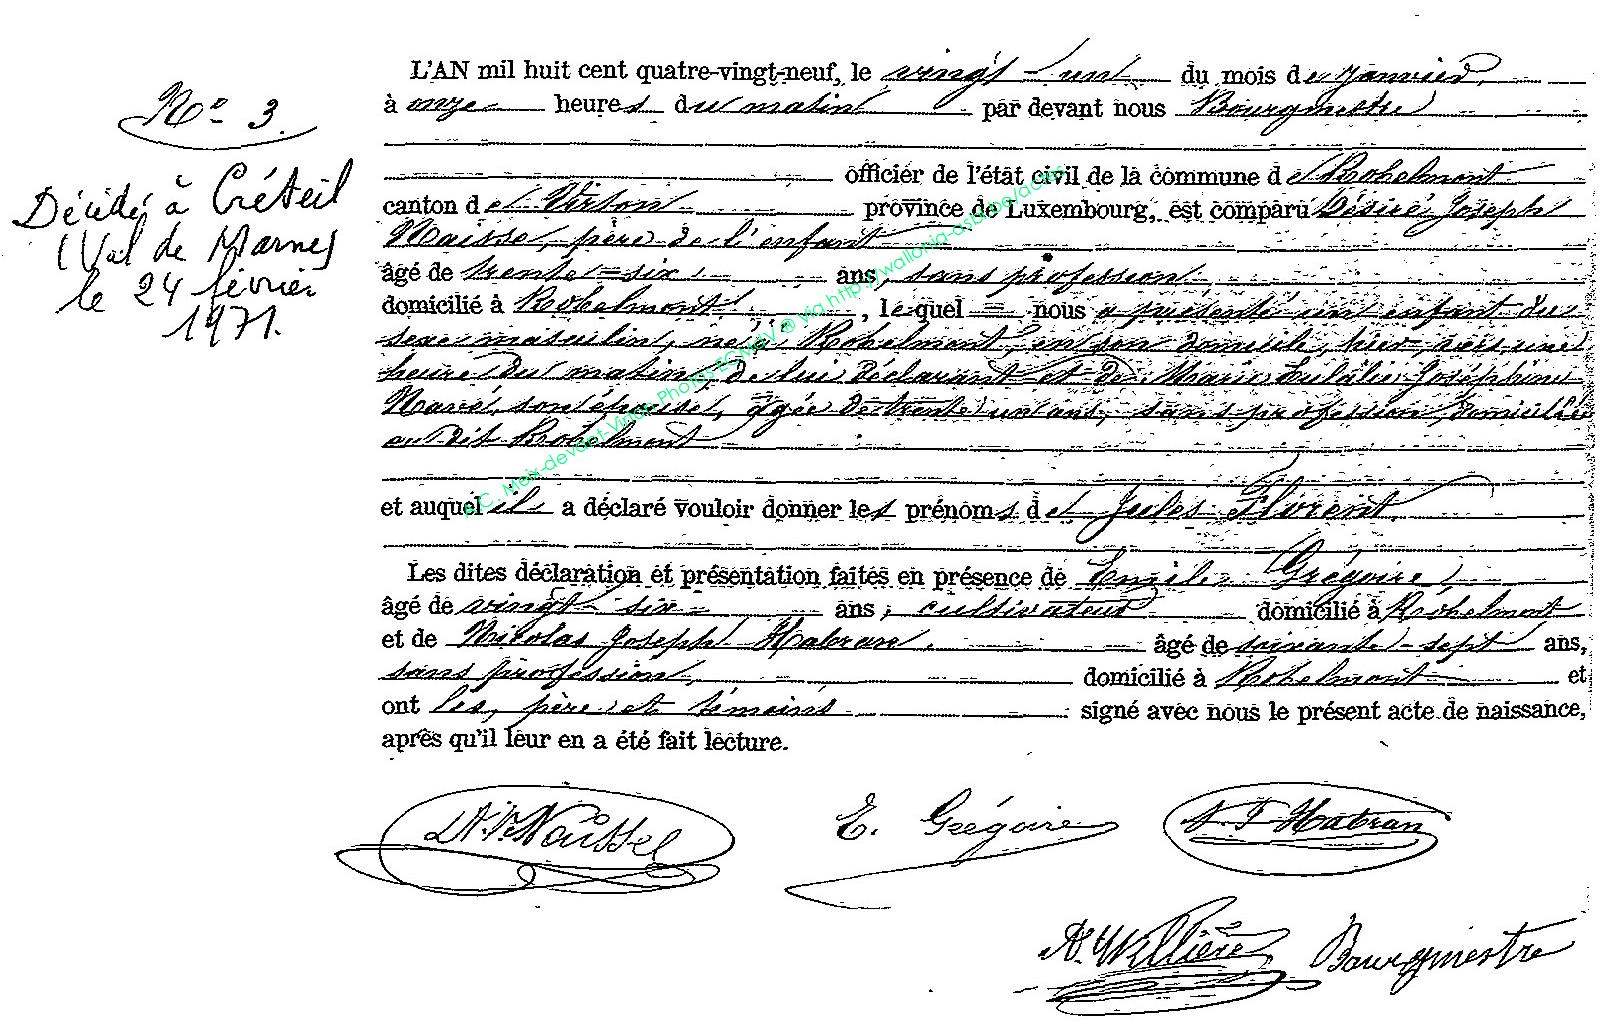 N° 3.
Décédé à Créteil
(Val de Marne)
le 24 février
1971.
L'AN mil huit cent quatre-vingt-neuf, le vingt-un du mois de Janvier
à onze heures du matin par devant nous Bourgmestre
officier de l'état civil de la commune de Rohelmont
canton de Virton province de Luxembourg, est comparu Désiré Joseph
père de l'enfant
âgé de trente-six ans, sans profession
domicilié à Rohelmont, lequel nous a présenté un enfant du
sexe masculin, né à Rohelmont, en son domicile, hier, vers une
heure du matin, de lui déclarant et de Marie Eulalie Joséphine
son épouse, âgée de trente un ans, sans profession, domiciliée
au dit Rohelmont
et auquel il a déclaré vouloir donner les prénoms de Jules Florent
Les dites déclaration et présentation faites en présence de Emile Grégoire,
âgé de vingt-six ans, cultivateur domicilié à Rohelmont
et de Nicolas Joseph Habran, âgé de soixante-sept ans,
sans profession, domicilié à Rohelmont et
ont les, père et témoins signé avec nous le présent acte de naissance,
après qu'il leur en a été fait lecture.
E. Grégoire
N. J Habran
Bourgmestre
A.C. Meix-devant-Virton Photos EC MdV © via http://wallonia-asbl.be/actes